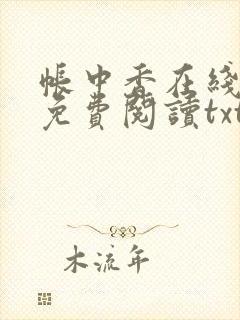 帳中香在綫
免費閱讀txt
木流年